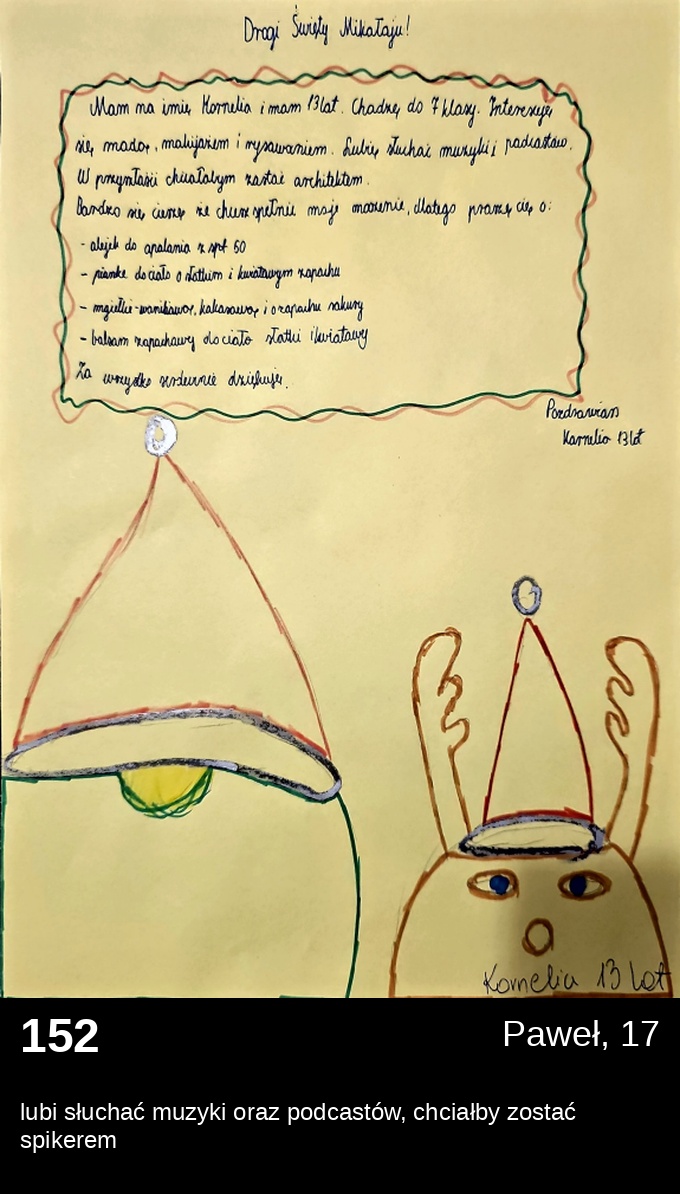 Drogi Święty Mikołaju!
Mam na imię Kornelia i mam 13 lat. Chodzę do 7 klasy. Interesuję
się modą, makijażem i rysowaniem. Lubię słuchać muzyki i podcastów.
W przyszłości chciałabym zostać architektem.
Bardzo się cieszę że chcesz spełnić moje marzenie, dlatego proszę cię o:
- olejek do opalania z spf 50
- piankę do ciała o słodkim i kwiatowym zapachu
- mgiełkę - waniliową, kokosową i o zapachu sakury
- balsam zapachowy do ciała słodki i kwiatowy
Za wszystko serdecznie dziękuję.
Pozdrawiam
Kornelia 13 lat
Kornelia 13 lat
152
Paweł, 17
lubi słuchać muzyki oraz podcastów, chciałby zostać
spikerem